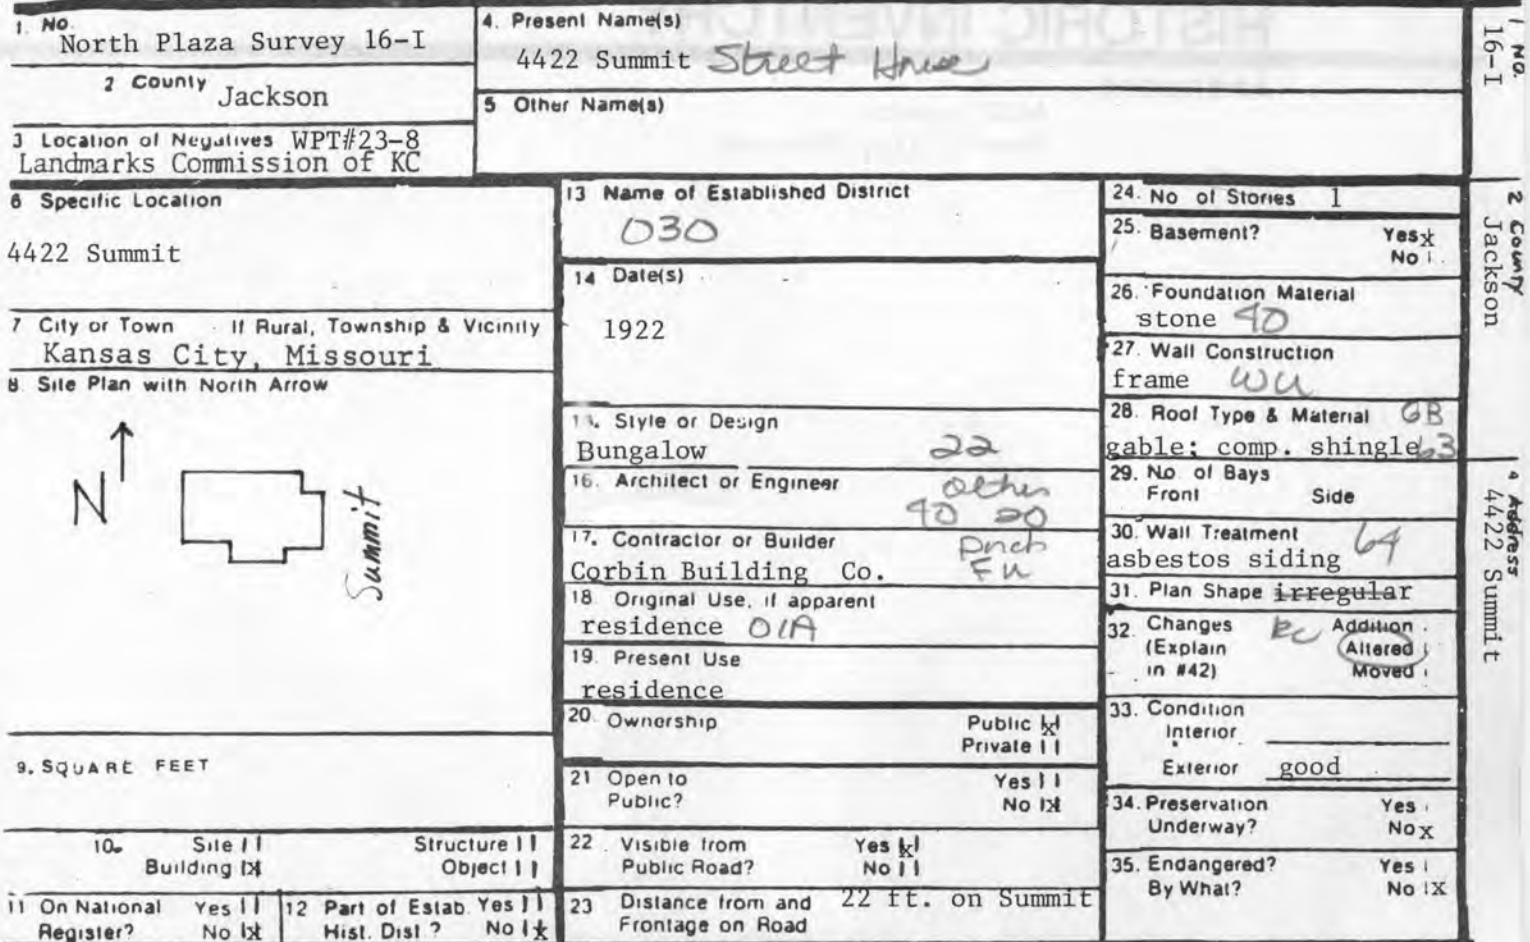 1. No.
North Plaza Survey 16-I
2 County Jackson
3 Location of Negatives WPT#23-8
Landmarks Commission of KC
4. Present Name(s)
4422 Summit Street House
5 Other Name(s)
6 Specific Location
4422 Summit
7 City or Town If Rural, Township & Vicinity
Kansas City, Missouri
8. Site Plan with North Arrow
N
Summit
9. SQUARE FEET
10. Site Structure
Building X Object
11 On National Yes
Register? No X
12 Part of Estab. Yes
Hist. Dist.? No X
13 Name of Established District
030
14 Date(s)
1922
Style or Design
Bungalow 22
16. Architect or Engineer other
40 20
17. Contractor or Builder Prch
Corbin Building Co. FU
18 Original Use, if apparent
residence 01A
19. Present Use
residence
20. Ownership Public X
Private
21 Open to Yes
Public? No X
22. Visible from Yes X
Public Road? No
23 Distance from and 22 ft. on Summit
Frontage on Road
24. No of Stories 1
25. Basement? Yes X
No
26. Foundation Material
stone 40
27. Wall Construction
frame WU
28. Roof Type & Material GB
gable; comp. shingle 63
29. No. of Bays
Front Side
30. Wall Treatment 64
asbestos siding
31. Plan Shape irregular
32. Changes Addition
(Explain Altered
in #42) Moved
33. Condition
Interior
Exterior good
34. Preservation Yes
Underway? No X
35. Endangered? Yes
By What? No X
1 NO.
16-I
2 County
Jackson
4 Address
4422 Summit
HISTORIC INVENTORY